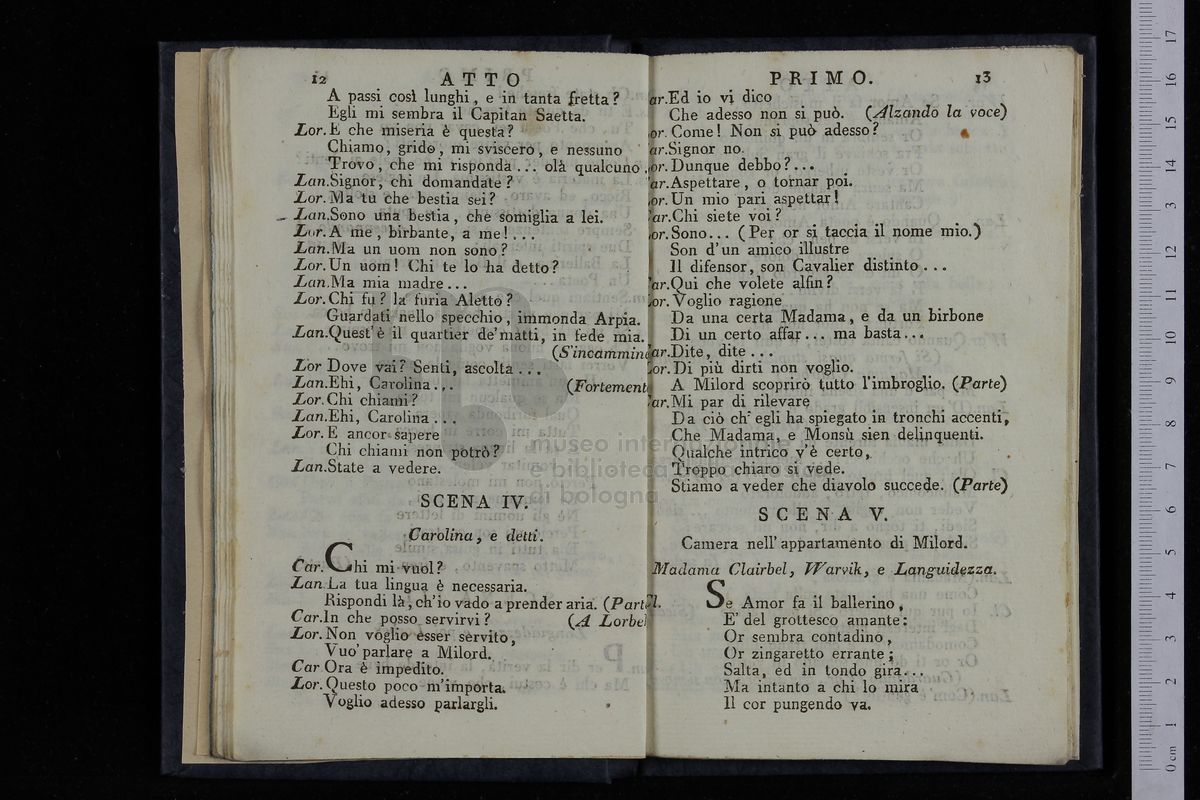 12 ATTO
A passi così lunghi, e in tanta fretta?
Egli mi sembra il Capitan Saetta.
Lor. E che miseria è questa?
Chiamo, grido, mi sviscero, e nessuno
Trovo, che mi risponda ... olà qualcuno.
Lan. Signor, chi domandate?
Lor. Ma tu che bestia sei?
Lan. Sono una bestia, che somiglia a lei.
Lor. A me, birbante, a me!...
Lan. Ma un uom non sono?
Lor. Un uom! Chi te lo ha detto?
Lan. Ma mia madre...
Lor. Chi fu? la furia Aletto?
Guardati nello specchio, immonda Arpia.
Lan. Quest'è il quartier de'matti, in fede mia.
(S'incammin
Lor Dove vai? Senti, ascolta...
Lan. Ehi, Carolina... (Fortement
Lor. Chi chiami?
Lan. Ehi, Carolina...
Lor. E ancor sapere
Chi chiami non potrò?
Lan. State a vedere.
SCENA IV.
Carolina, e detti.
Car. Chi mi vuol?
Lan La tua lingua è necessaria.
Rispondi là, ch'io vado a prender aria. (Part
Car. In che posso servirvi? (A Lorbe
Lor. Non voglio esser servito,
Vuo' parlare a Milord.
Car Ora è impedito.
Lor. Questo poco m'importa.
Voglio adesso parlargli.
PRIMO. 13
ar. Ed io vi dico
Che adesso non si può. (Alzando la voce)
or. Come! Non si può adesso?
ar. Signor no.
or. Dunque debbo?...
ar. Aspettare, o tornar poi.
or. Un mio pari aspettar!
ar. Chi siete voi?
or. Sono... (Per or si taccia il nome mio.)
Son d'un amico illustre
Il difensor, son Cavalier distinto...
ar. Qui che volete alfin?
or. Voglio ragione
Da una certa Madama, e da un birbone
Di un certo affar... ma basta...
ar. Dite, dite...
or. Di più dirti non voglio.
A Milord scoprirò tutto l'imbroglio. (Parte)
ar. Mi par di rilevare
Da ciò ch'egli ha spiegato in tronchi accenti,
Che Madama, e Monsù sien delinquenti.
Qualche intrico v'è certo,
Troppo chiaro si vede.
Stiamo a veder che diavolo succede. (Parte)
SCENA V.
Camera nell'appartamento di Milord.
Madama Clairbel, Warvik, e Languidezza.
l. Se Amor fa il ballerino,
E' del grottesco amante:
Or sembra contadino,
Or zingaretto errante;
Salta, ed in tondo gira...
Ma intanto a chi lo mira
Il cor pungendo va.
museo inter
e biblioteca
di bologna
0 cm 1 2 3 4 5 6 7 8 9 10 11 12 13 14 15 16 17